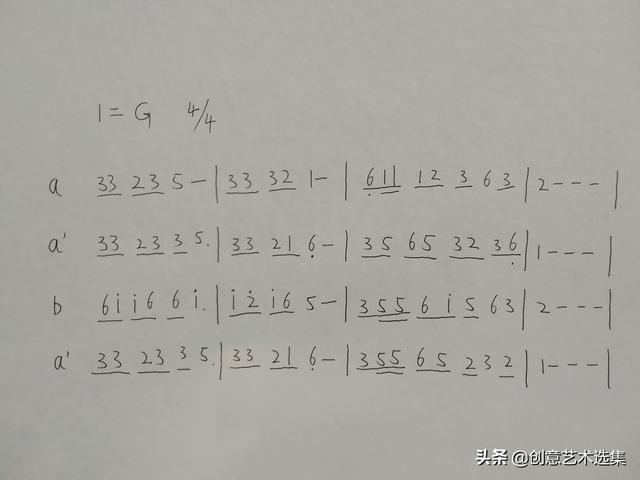 1=G 4/4
a 33 235 - | 33 32 1 - | 611 12 3 6 3 | 2 - - - |
a' 33 23 3 5. | 33 21 6 - | 35 65 32 36 | 1 - - - |
b 6i i6 6 i. | i2 i6 5 - | 355 6i 5 63 | 2 - - - |
a' 33 23 3 5. | 33 21 6 - | 355 65 2 3 2 | 1 - - - |
头条 @创意艺术选集